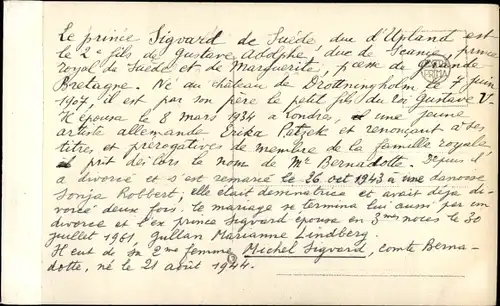 Le prince Sigvard de Suède, duc d'Upland est
le 2e fils de Gustave Adolphe, duc de Scanie, prince
royal de Suède et de Marguerite, p.esse de Grande
Bretagne. Né au château de Drottningholm le 7 juin
1907, il est par son père le petit fils du roi Gustave V.
Il épousa le 8 mars 1934 à Londres, une jeune
artiste allemande Erika Patzek et renonçant à ses
titres et prérogatives de membre de la famille royale
prit dès lors le nom de Mr Bernadotte. Depuis il
a divorcé et s'est remarié le 26 oct 1943 à une danoise
Sonja Robbert, elle était dessinatrice et avait déjà di-
vorcé deux fois. le mariage se termina lui aussi par un
divorce et l'ex prince Sigvard épouse en 3mes noces le 30
juillet 1961, Gullan Marianne Lindberg.
Il eut de sa 2me femme Michel Sigvard, comte Berna-
dotte, né le 21 août 1944.